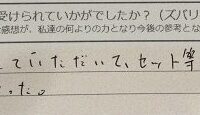 受けられていかがでしたか？（ズバリ
感想が、私達の何よりの力となり今後の参考とな
していただいて、セット等
った。